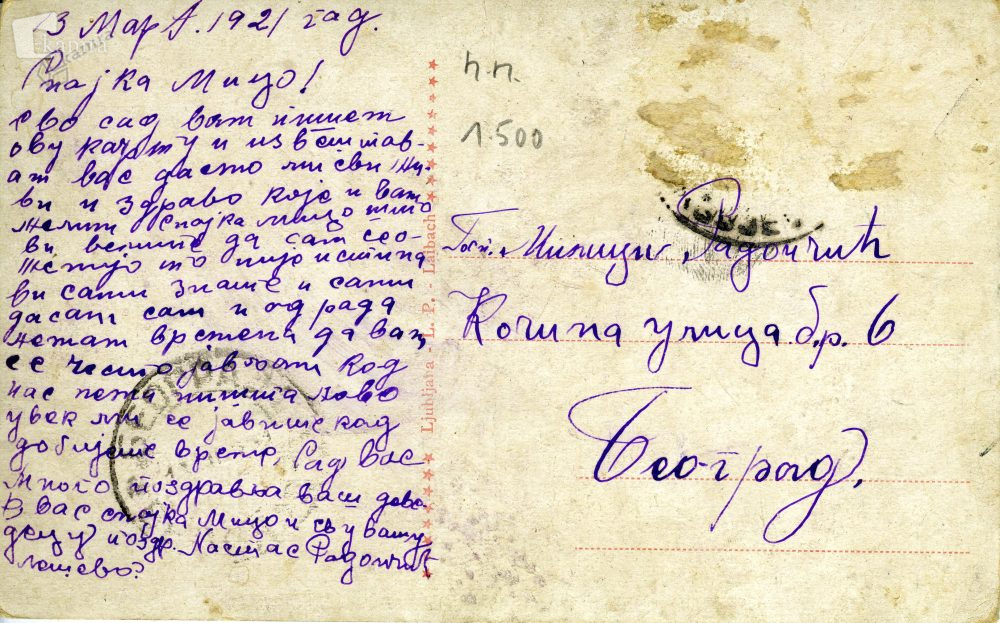 3 Март. 1921 год.
Снајка Мицо!
Ево сад вам пишем
ову карту и извештав-
ам вас да смо ми сви жи-
ви и здраво које и вам
желим Снајка Мицо што
ви велите да сам сео-
није истина
ви сами знате и сами
да сам сам и од рада
немам времена да вам
се често јављам код
нас нема ништа ново
увек ми се јавите кад
добијете време Сад вас
много поздравља ваш девер
З вас снајка Мицо и сву вашу
децу поздр. Настас Радојчић
h.n.
1.500
Госп. Милици Радојчић
Кочина улица бр. 6
Београд.
Ljubljava - L. P. - Laibach